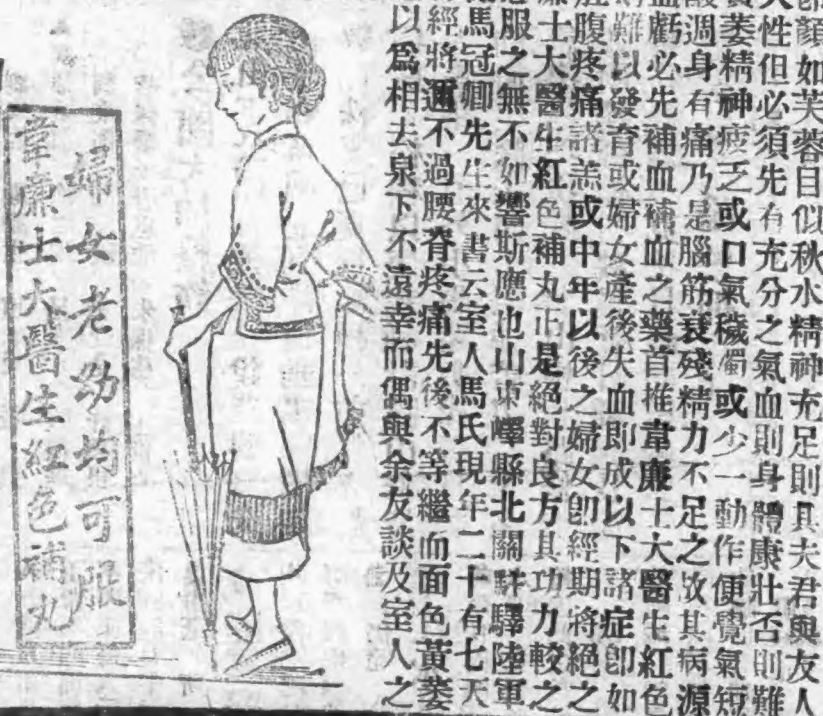 顏如芙蓉目似秋水精神充足則具夫君與友人
性但必須先有充分之氣血則身體康壯否則難
萎精神疲乏或口氣穢濁或少一動作便覺氣短
週身有痛乃是腦筋衰殘精力不足之故其病源
虧必先補血補血之藥首推韋廉士大醫生紅色
難以發育或婦女產後失血即成以下諸症即如
腹疼痛諸恙或中年以後之婦女即經期將絕之
士大醫生紅色補丸正是絕對良方其功力較之
服之無不如響斯應也山東嶧縣北關驛陸軍
馬冠卿先生來書云室人馬氏現年二十有七天
經將邇不過腰脊疼痛先後不等繼而面色黃萎
以爲相去泉下不遠幸而偶與余友談及室人之
婦女老幼均可服
韋廉士大醫生紅色補丸